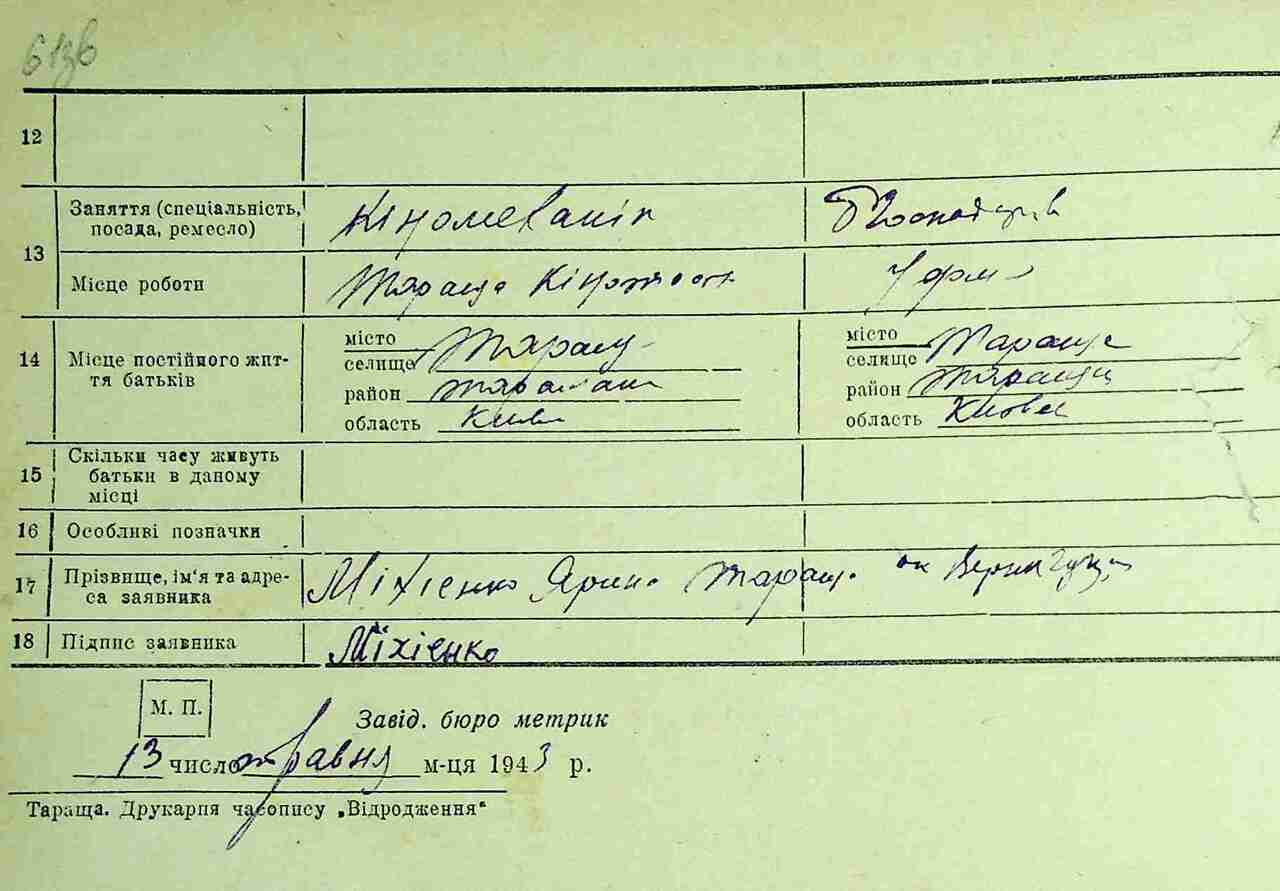 61зв
12
13 Заняття (спеціальність, Кіномеханік
посада, ремесло)
Місце роботи Тараща Кінотеат
14 Місце постійного жит-
тя батьків
місто
селище
район
область Київ
місто
селище Тараща
район Тараща
область
15 Скільки часу живуть
батьки в даному
місці
16 Особливі позначки
17 Прізвище, ім'я та адре- Міхієнко Ярина Тараща
са заявника
18 Підпис заявника Міхієнко
М. П.
Завід. бюро метрик
13 число травня м-ця 1943 р.
Тараща. Друкарня часопису „Відродження"